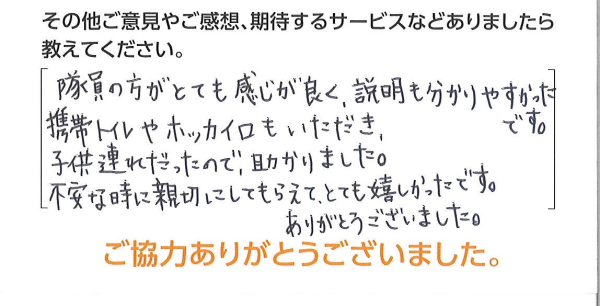 その他ご意見やご感想、期待するサービスなどありましたら
教えてください。
隊員の方がとても感じが良く、説明も分かりやすかった
です。
携帯トイレやホッカイロもいただき、
子供連れだったので、助かりました。
不安な時に親切にしてもらえて、とても嬉しかったです。
ありがとうございました。
ご協力ありがとうございました。